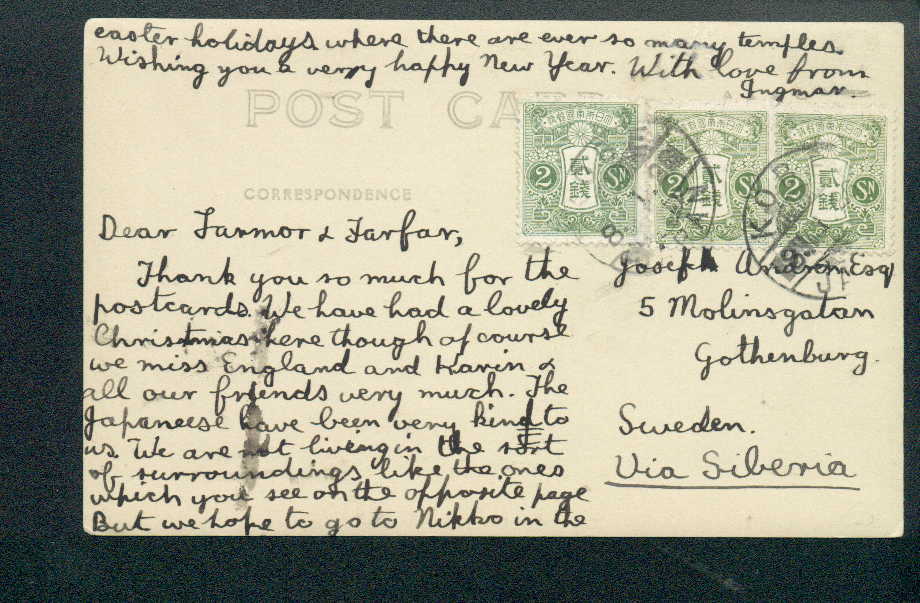 easter holidays where there are ever so many temples.
Wishing you a very happy New Year. With love from
Ingmar.
POST CARD
CORRESPONDENCE
Dear Farmor & Farfar,
Thank you so much for the
postcards. We have had a lovely
Christmas here though of course
we miss England and Karin &
all our friends very much. The
Japaneese have been very kind to
us. We are not liveing in the sort
of surroundings like the ones
which you see on the opposite page
But we hope to go to Nikko in the
大日本帝國郵便
貳錢
2 SN
大日本帝國郵便
貳錢
2 SN
大日本帝國郵便
貳錢
2 SN
KOBE
Joseph Esq
5 Molinsgatan
Gothenburg.
Sweden.
Via Siberia